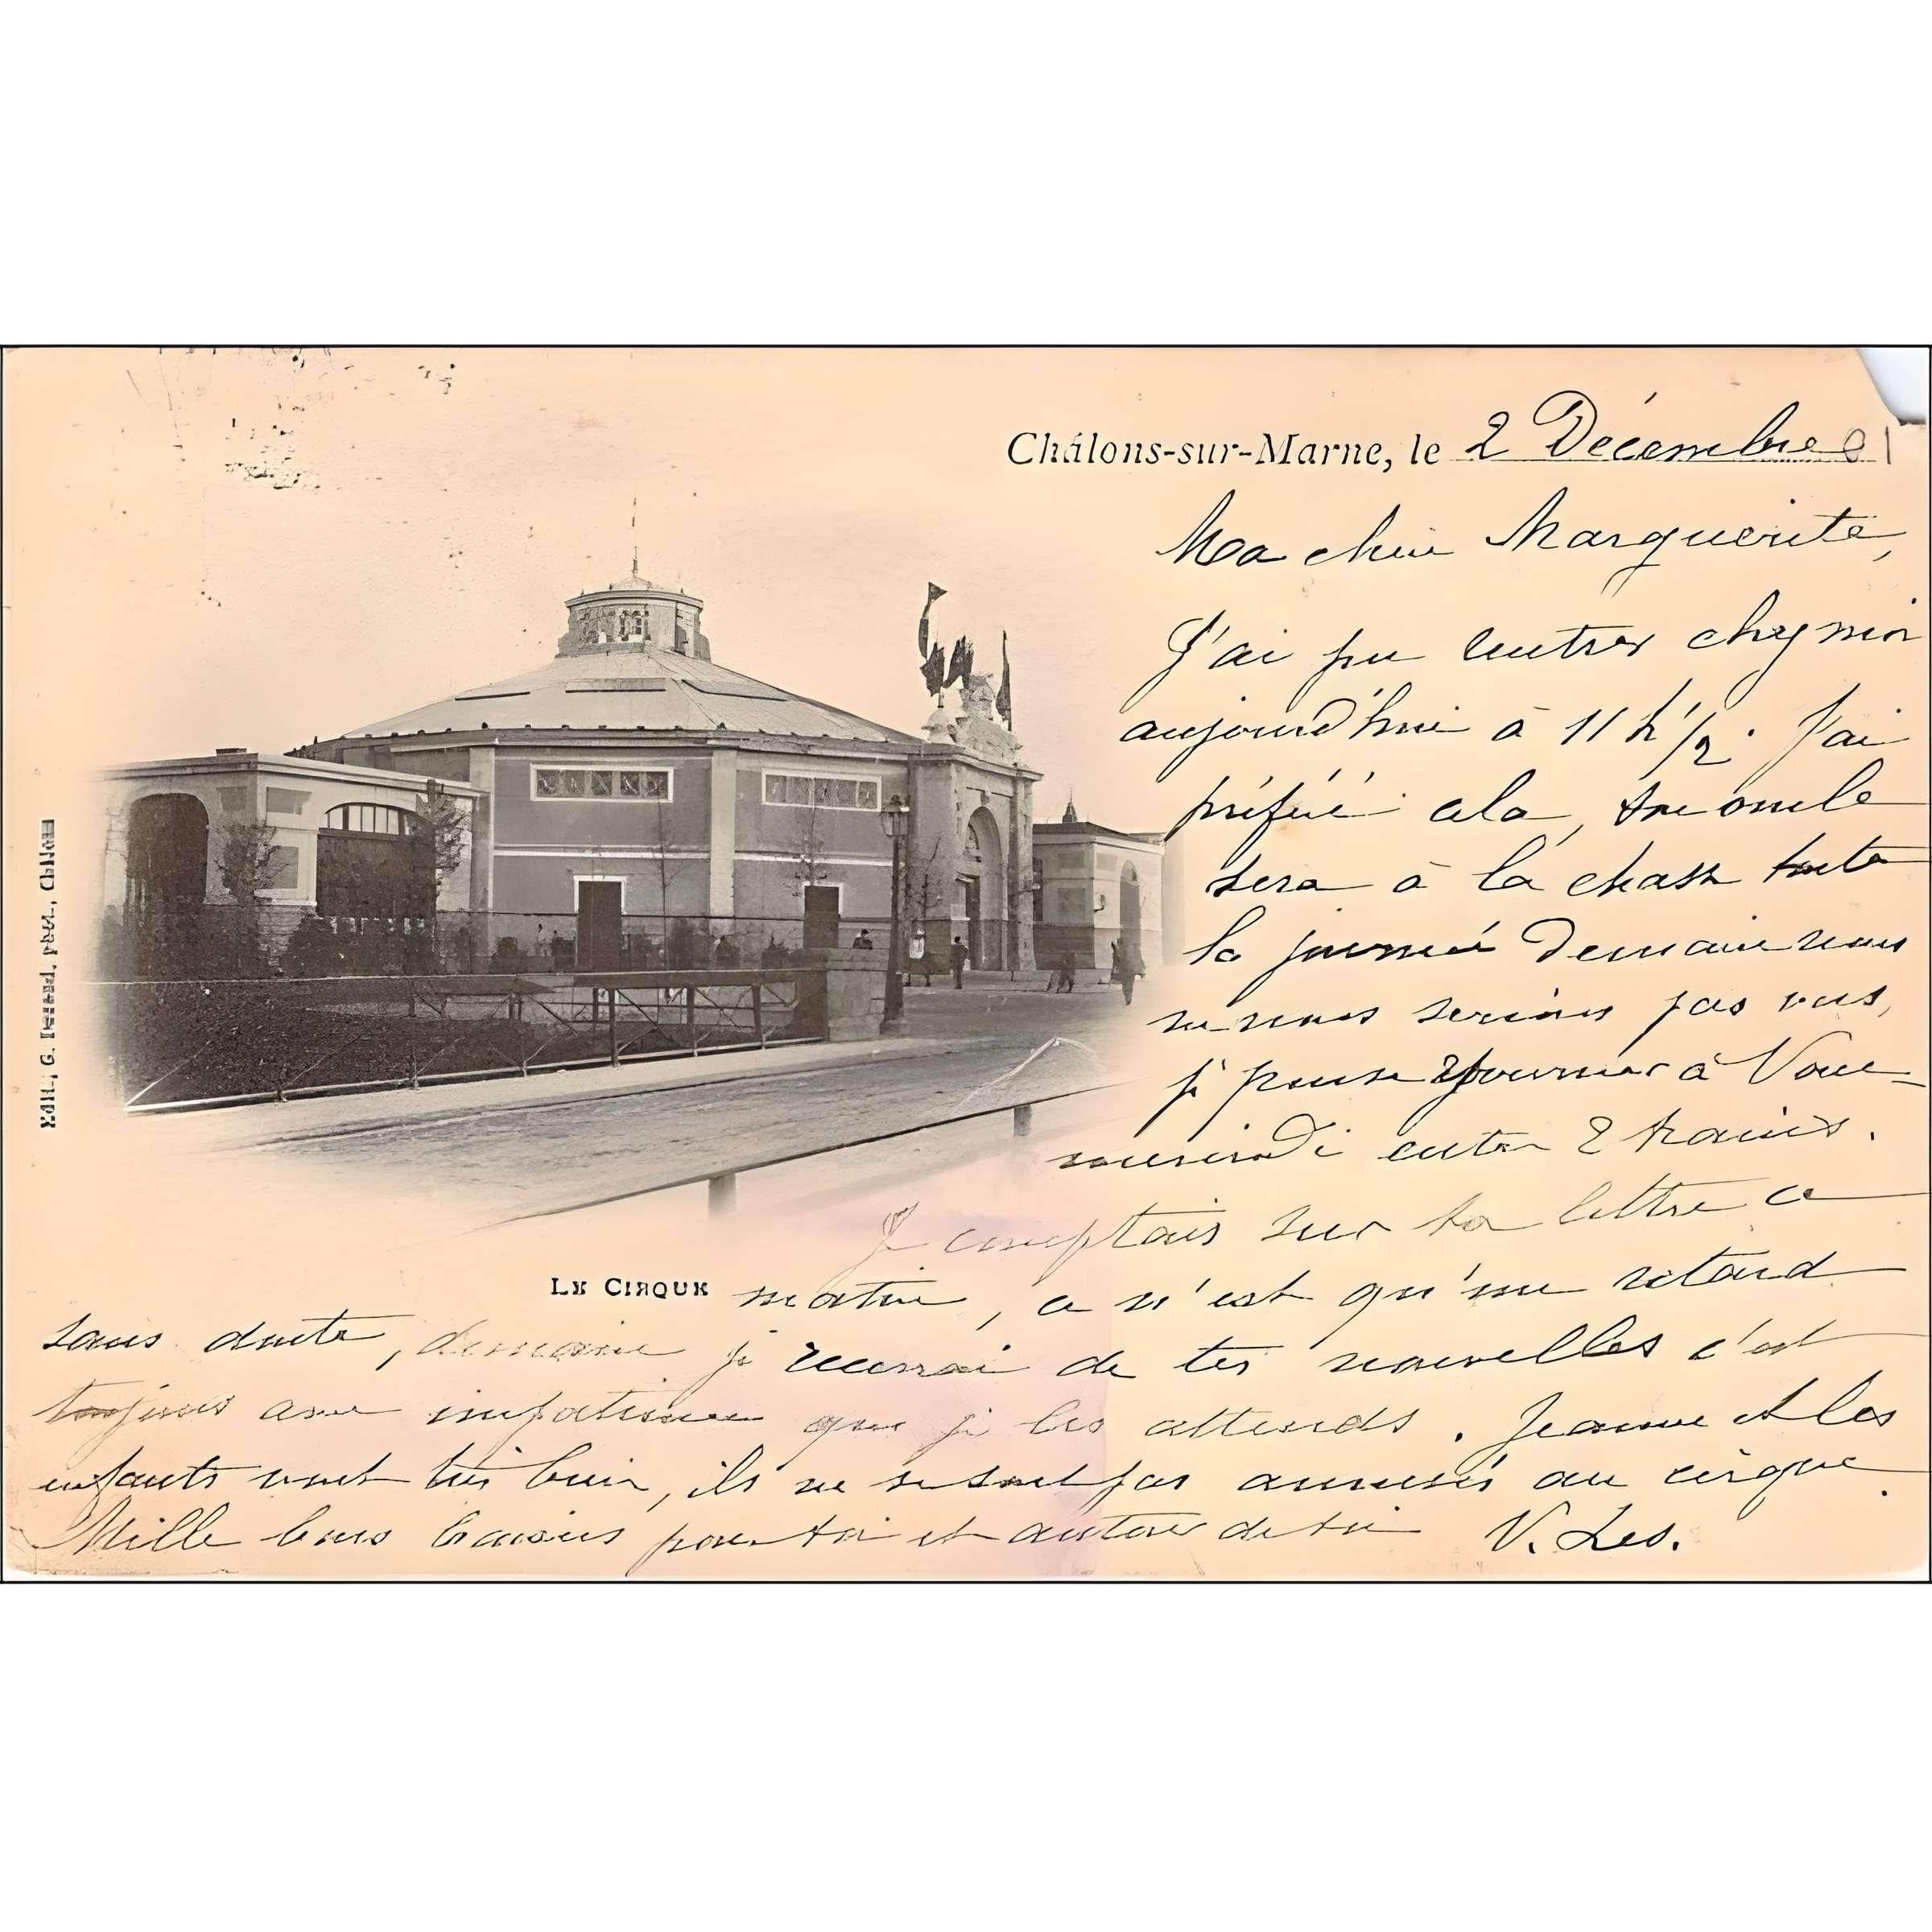 Châlons-sur-Marne, le 2 Décembre 01
Ma chère Marguerite,
J'ai pu rentrer chez moi
aujourd'hui à 11 h 1/2. J'ai
préféré cela, ton oncle
sera à la chasse toute
la journée demain nous
ne nous serions pas vus,
je pense séjourner à
mercredi entre 2 trains.
Je comptais sur ta lettre ce
LE CIRQUE
matin, ce n'est qu'un retard
sans doute, demain je recevrai de tes nouvelles c'est
toujours avec impatience que je les attends. Jeanne et les
enfants vont très bien, ils ne se sont pas amusés au cirque.
Mille bons baisers pour toi et autour de toi V. Les.
Édit., G. phot., Châlons